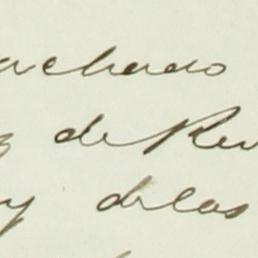 achado
de Rev
y delas